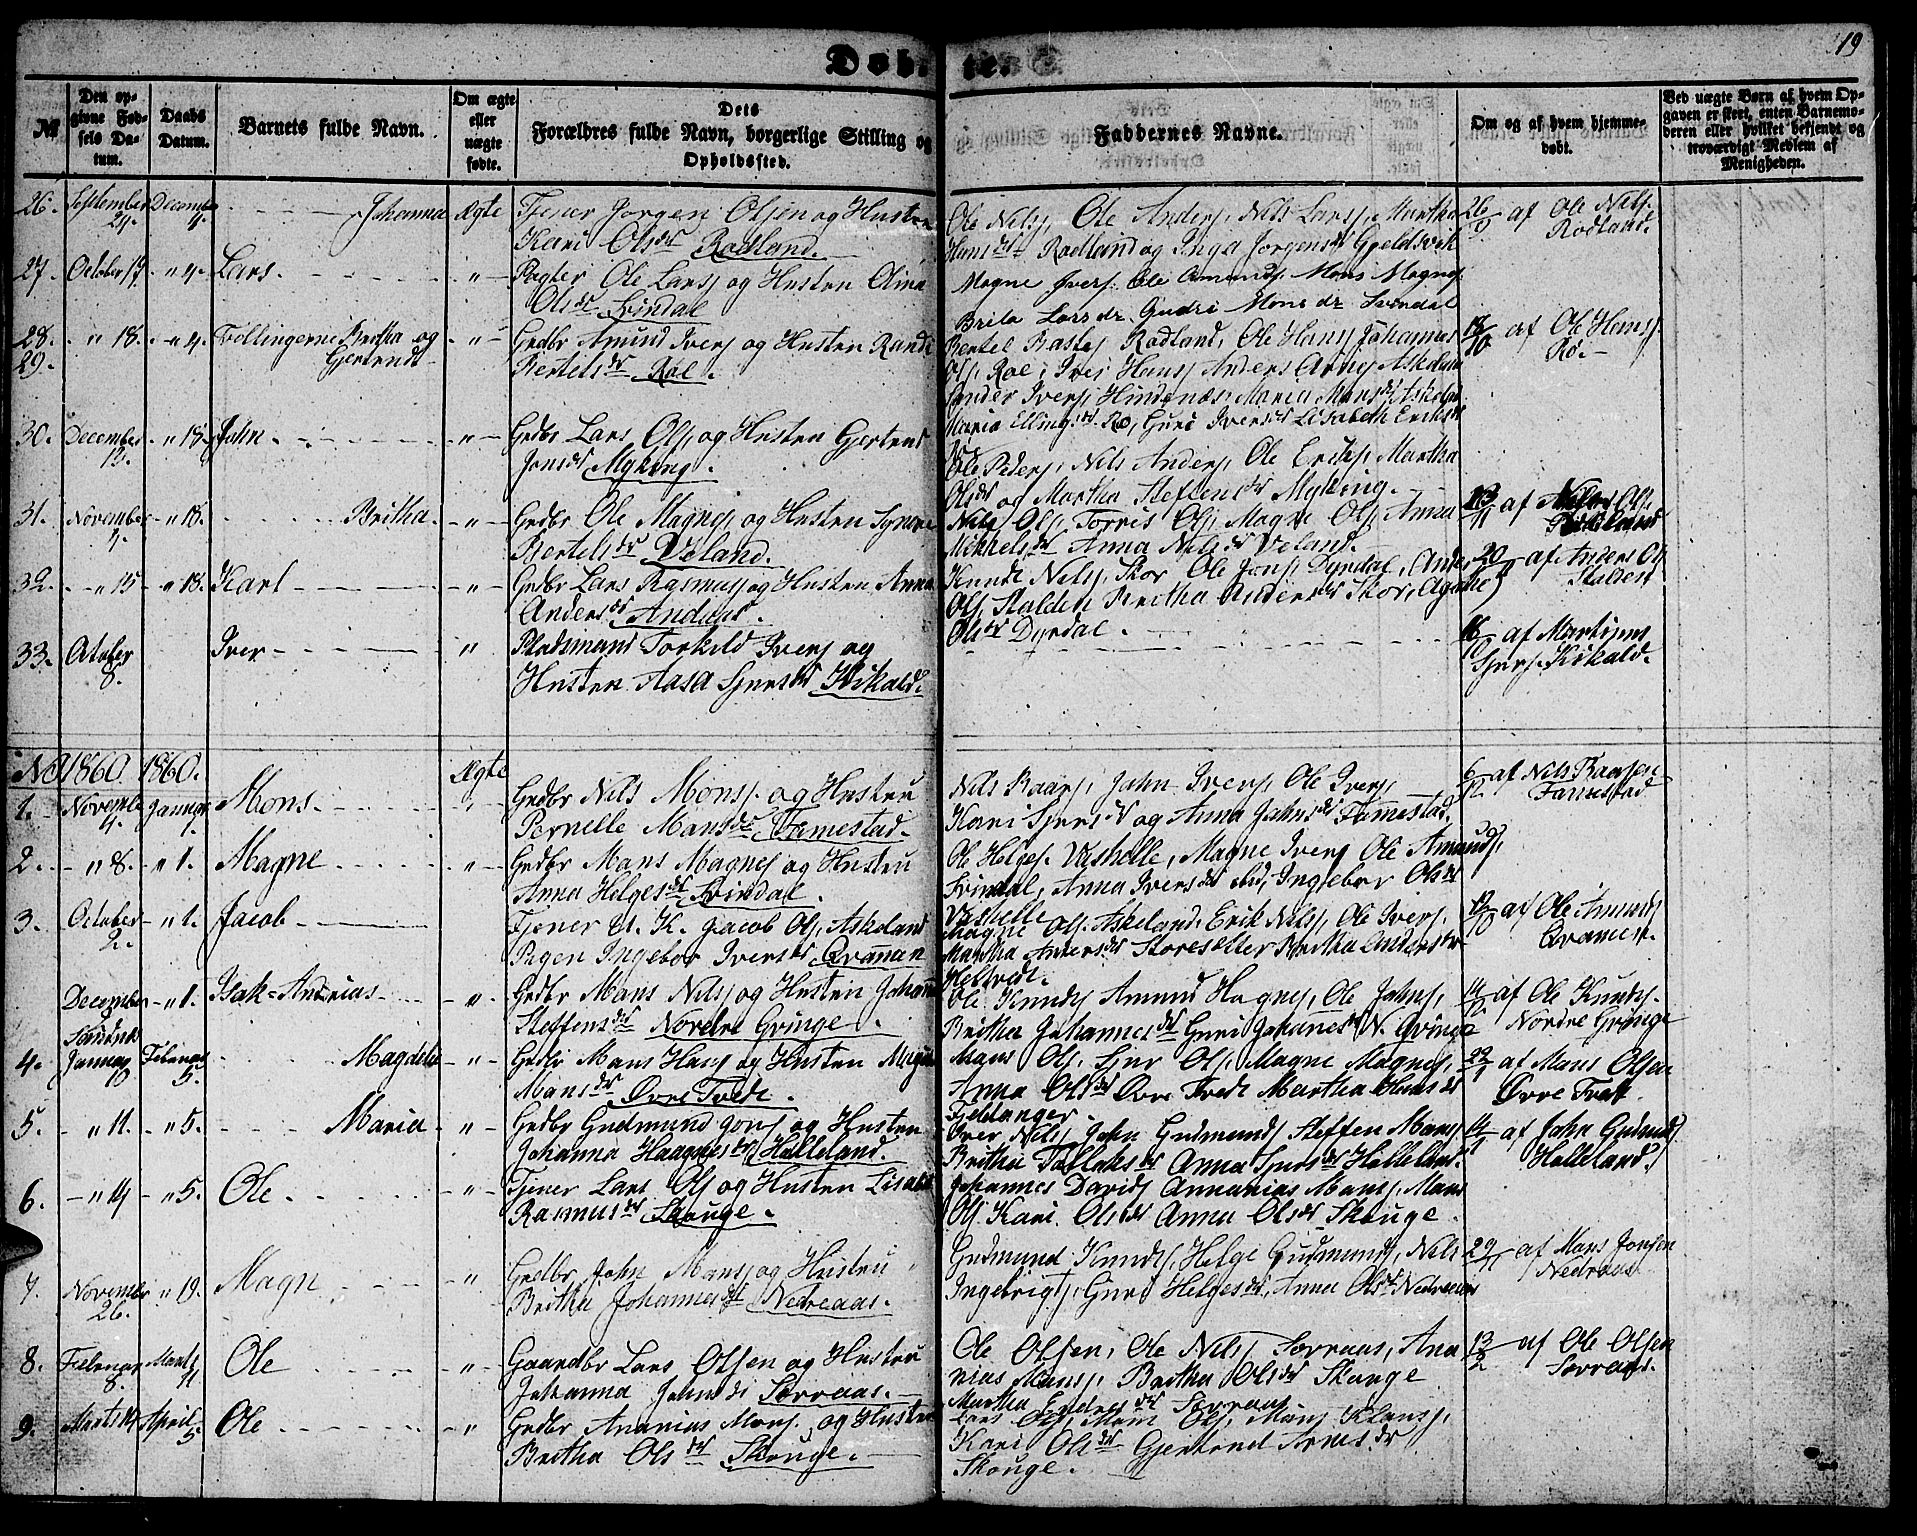 Døbte.
19
№
Den opgivne Fødsels Datum.
Daabs Datum.
Barnets fulde Navn.
Om ægte eller uægte fødte.
Dets Forælbres fulde Navn, borgerlige Stilling og Opholdssted.
Faddernes Navne.
Om og af hvem hjemmedøbt.
Ved uægte Børn af hvem Opgaven er skeet, enten Barnemoderen eller hvilket bekjendt og troværdigt Medlem af Menigheden.
26. September 24. December 4. Johanna Ægte Tjener Jørgen Olsen og Hustru
Kari Olsdr Radland.
Ole Nilsj, Ole Andersj, Nils Larsj, Martha
Hansdr Radland og Inga Jørgensdr Gjeldsvik
26/9 af Ole Nilsj.
Radland.
27. October 17. " 4. Lars. " Pagter Ole Larsj og Husten
Olsdr Svindal
Magne Iversj. Ole Amunds Mons Magnesj.
Brita Larsdr. Gudri Monsdr Svindal
28. " 18. " 4. Tvillingerne Britha og " Gedbr Amund Iversj og Husten Randi
29. Gjertrud Bertelsdr Roe.
Bertel Rastesj Radland, Ole Hansj Johannes
Olsj Roe, Iver Hansj Anders Arnesj Askeland
Sander Iversj Hindenæs, Maria Mansdr Askeland
Maria Ellingsdr. Rø, Guri Iversdr Lisabeth Eriksdr
Roe
18/10 af Ole Hansj
Rø.
30. December 13. " 18. John. " Gedbr Lars Olsj, og Husten Gjertrud
Jonsdr Myking.
Ole Pedersj, Nils Andersj Ole Eriksj, Martha
Olsdr og Martha Steffensdr Myking.
31. November 4. " 18. Britha. " Gedbr Ole Magnesj og Husten Synove
Bertelsdr Veland.
Nils Olsj Torris Olsj, Magne Olsj Anna
Mikkelsdr Anna Nilsdr Veland.
13/11 af Nils Ols.
32. " 15 " 18. Karl " Gedbr Lars Rasmusj og Husten Anna
Andersdr Andaas.
Knud Nilsj, Skor Ole Jonsj Dyrdal, Anders
Olsj Stalden Britha Andersdr Skor, Agathe
Olsdr Dyrdal.
20/11 af Anders Ols
Stalden
33. October 8. Iver " Pladsmand Torkild Iversj og
Husten Aasa Sjursdr Kikald.
16/10 af Martinus
Sjursj. Kikald.
No 1860 1860. Ægte
1. Novembr 4. Januar 1. Mons. " Gedbr Nils Monsj. og Hustru
Pernelle Mansdr Famestad.
Nils Baarsj, John Iversj, Ole Iversj,
Kari Sjursd og Anna Johnsdr Famestad.
6/12 af Nils Baarsen
Famestad
2. " 8. " 1. Magne " Gedbr Mans Magnesj og Hustru
Anna Helgesdr Svindal.
Ole Helgesj. Vashelle, Magne Iversj Ole Amundsj
Svindal, Anna Iversdr ibd, Ingebor Olsdr
Vashelle
3. October 2. " 1. Jacob Tjener U. K. Jacob Olsj, Askeland
Pigen Ingebor Iversdr Qvamen
Magne Olsj. Askeland. Erik Nilsj, Ole Iversj.
Martha Andersdr Storesætter Britha Andersdr
Helltvedt.
12/10 af Ole Amunds
Qvamen.
December 8 " 1. Isak-Andreas " Gedbr Mans Nilsj og Husten Johanna
Steffensdr Nordre Gringe.
Ole Knudsj Amund Hagnesj, Ole Johnsj,
Britha Johannesdr Guri Johanesdr N. Gringe
14/12 af Ole Knudsj.
Nordre Gringe
4. Januar Februar 5. Magdeli " Gedbr Mans Hansj og Husten
Mansdr Øvre Tvedt.
Mans Olsj, Sjur Olsj, Magne Magnesj,
Anna Olsdr Øvre Tvedt Martha Hansdr
Fjeldanger
22/1 af Mans Olsen
Øvre Tvet
5. " 11. " 5. Maria " Gedbr Gudmund Jonsj og Husten
Johanna Haagnesdr Helleland.
Iver Nilsj, John Gudmundsj Steffen Mansj
Britha Tollaksdr Anna Sjursdr Helleland.
14/1 af John Gudmdsj
Helleland.
6. " 14 " 5. Ole. " Tjener Lars Olsj og Husten Lisabet
Rasmusdr Skouge.
Johannes Davidsj Annanias Mansj, Mans
Olsj, Kari Olsdr Anna Olsdr Skouge.
7. November 26. " 19. Magn " Gedbr John Mansj og Hustru
Britha Johannesdr Nedreaas.
Gudmund Knudsj, Helge Gudmundsj, Nils
Ingebrigtsj, Guri Helgesdr, Anna Olsdr Nedreaas
29/11 af Mans Jonsen
Nedreaas
8. Februar 8. Marts 11 Ole " Gaardbr Lars Olsen og Hustru
Johanna Johnsdr Sørraas.
Ole Olsen, Ole Nilsj Sørraas, Ana
nias Mansj, Britha Olsdr Skouge
Martha Endresdr Sørraas.
13/2 af Ole Olsen
Sørraas.
9. Marts 14 April 5 Ole " Gedbr Ananias Monsj. og Husten
Britha Olsdr Skouge.
Lars Olsj, Mons Olsj, Mons Klausj,
Kari Olsdr Gjertrud Arnesdr
Skouge.